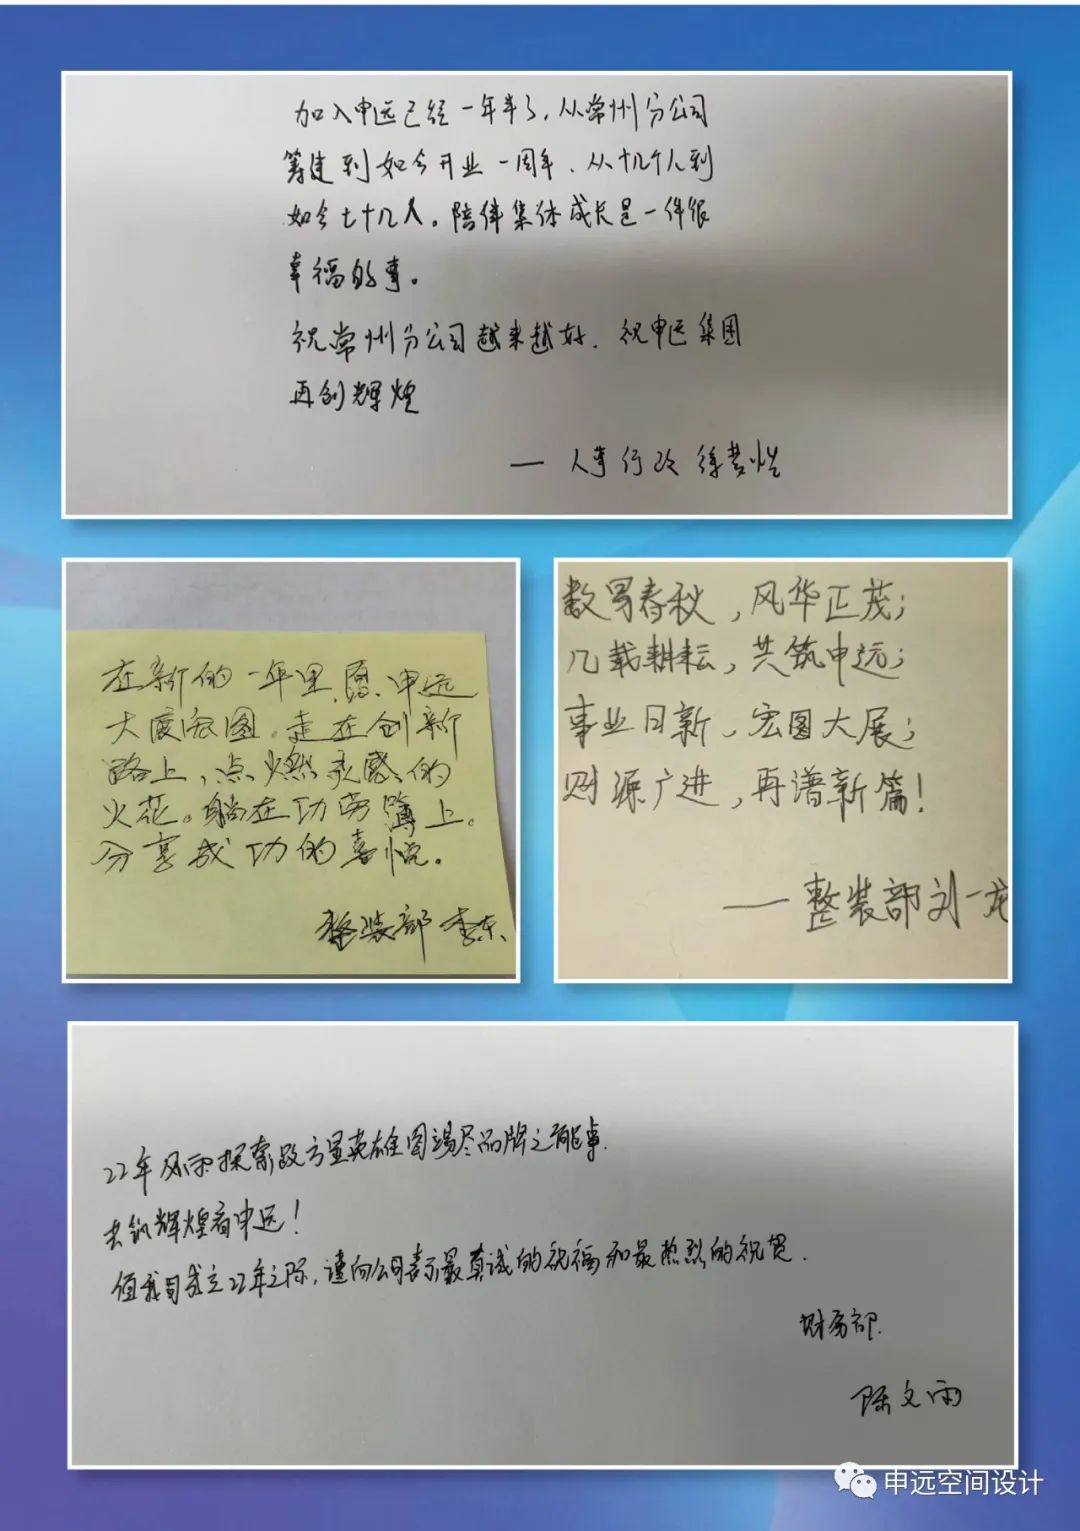 加入申远已经一年半了,从常州分公司
筹建到如今开业一周年、从十几个人到
如今七十几人。陪伴集体成长是一件很
幸福的事。
祝常州分公司越来越好.祝申远集团
再创辉煌
— 人事行政 徐
在新的一年里,愿申远
大展宏图。走在创新
路上,点燃灵感的
火花。躺在功劳簿上。
分享成功的喜悦。
整装部 李东
数易春秋,风华正茂;
几载耕耘,共筑申远;
事业日新,宏图大展;
财源广进,再谱新篇!
——整装部刘一龙
22年风雨探索路方显英雄图竭尽品牌之能事.
共筑辉煌看申远!
值我司成立22年之际,谨向公司表示最真诚的祝福和最热烈的祝贺.
财务部.
陈文雨
申远空间设计